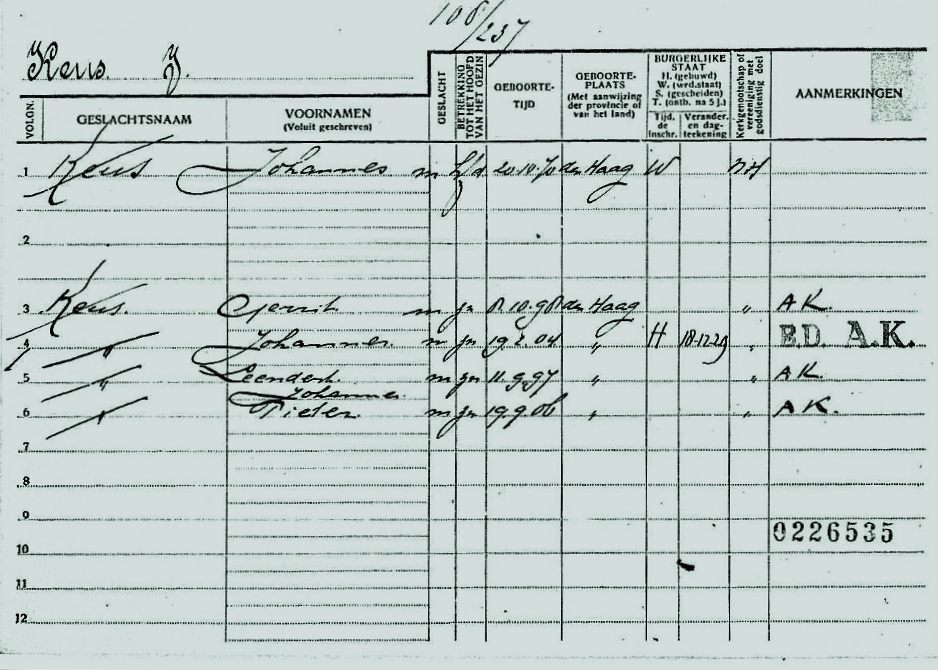 108/237
Keus J.
VOLGN.
GESLACHTSNAAM
VOORNAMEN
(Voluit geschreven)
GESLACHT
BETREKKING TOT HET HOOFD VAN HET GEZIN
GEBOORTE-
TIJD
GEBOORTE-
PLAATS
(Met aanwijzing
der provincie of
van het land)
BURGERLIJKE
STAAT
H. (gehuwd)
W. (wed.staat)
S. (gescheiden)
T. (ontb. na 5 j.)
Tijd.
de
inschr.
Verander.
en dag-
teekening
Kerkgenootschap of vereeniging met godsdienstig doel
AANMERKINGEN
1 Keus Johannes m hfd 20.10.70 den Haag W NH
2
3 Keus. Gerrit m zn 8.10.98 den Haag " A K.
4 " Johannes m zn 19.2.04 " H 18-12-29 " B.D. A.K.
5 " Leendert m zn 11.9.97 " " A K.
Johannes
6 " Pieter m zn 19.9.06 " " A K.
7
8
9
0226535
10
11
12